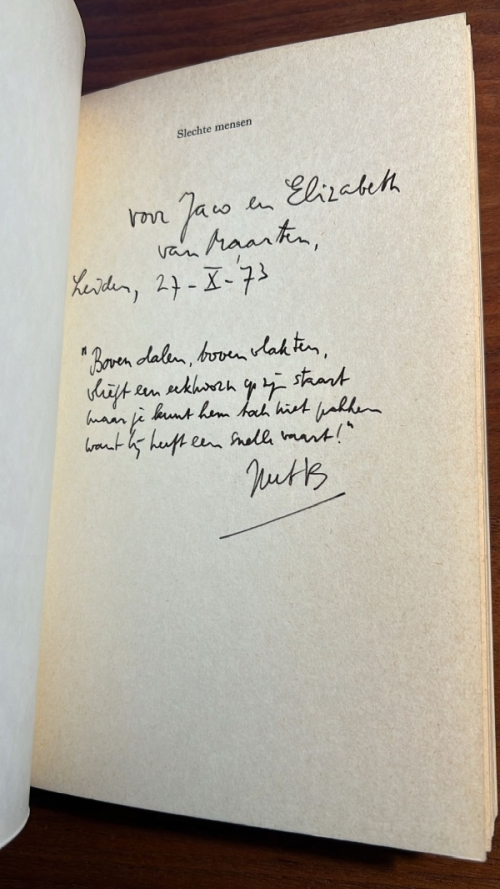 Slechte mensen
voor Jaco en Elizabeth
van Maarten,
Leiden, 27-X-73
"Boven dalen, boven vlakten,
vliegt een eekhoorn op zijn staart
maar je kunt hem toch niet pakken
want hij heeft een snelle vaart!"